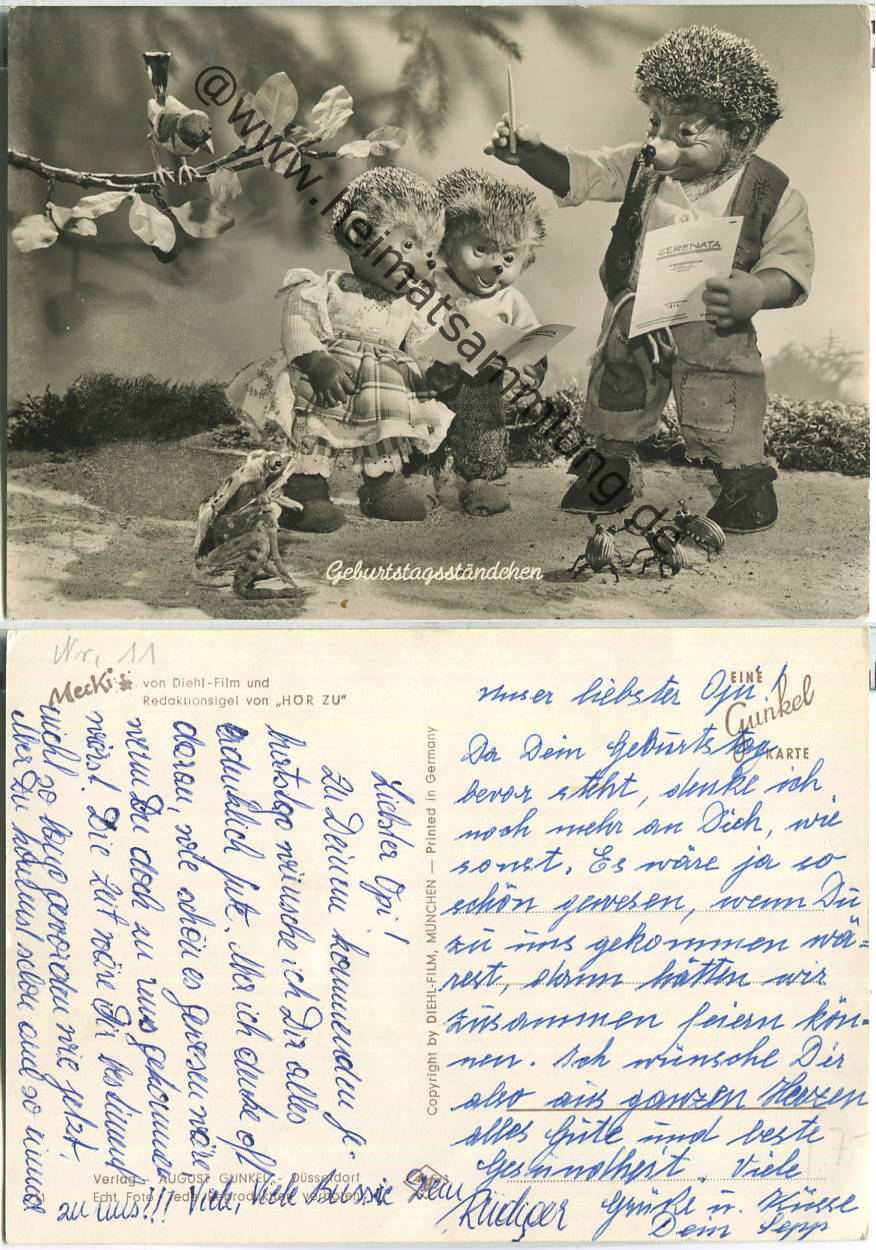 @www.heimatsammlung.de
SERENATA
Geburtstagsständchen
Nr. 11
Mecki's von Diehl-Film und
Redaktionsigel von „HÖR ZU"
EINE
Gunkel
KARTE
Liebster Opi!
Zu Deinem kommenden Ge-
burtstag wünsche ich Dir alles
erdenklich Gute. Mir ich denke oft
daran, wie schön es gewesen wäre
wenn Du doch zu uns gekommen
wärst. Die Zeit wäre Dir bestimmt
nicht so lang geworden wie jetzt.
Aber Du kommst schon auch so einmal
zu uns!!! Viele, viele Bussie Dein
Rüdiger
Copyright by DIEHL-FILM, MÜNCHEN — Printed in Germany
Unser liebster Opi!
Da Dein Geburtstag
bevor steht, denke ich
noch mehr an Dich, wie
sonst. Es wäre ja so
schön gewesen, wenn Du
zu uns gekommen wä-
rest, dann hätten wir
zusammen feiern kön-
nen. Ich wünsche Dir
also aus ganzen Herzen
alles Gute und beste
Gesundheit. Viele
Grüße u. Küsse
Dein Sepp
7-
Verlag AUGUST GUNKEL - Düsseldorf
Echt Foto Jede Reproduktion verboten